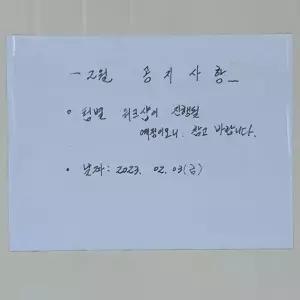 - 2월 공지사항 -
• 팀별 워크샵이 진행될
예정이오니. 참고 바랍니다.
• 날짜 : 2023. 02. 03(금)